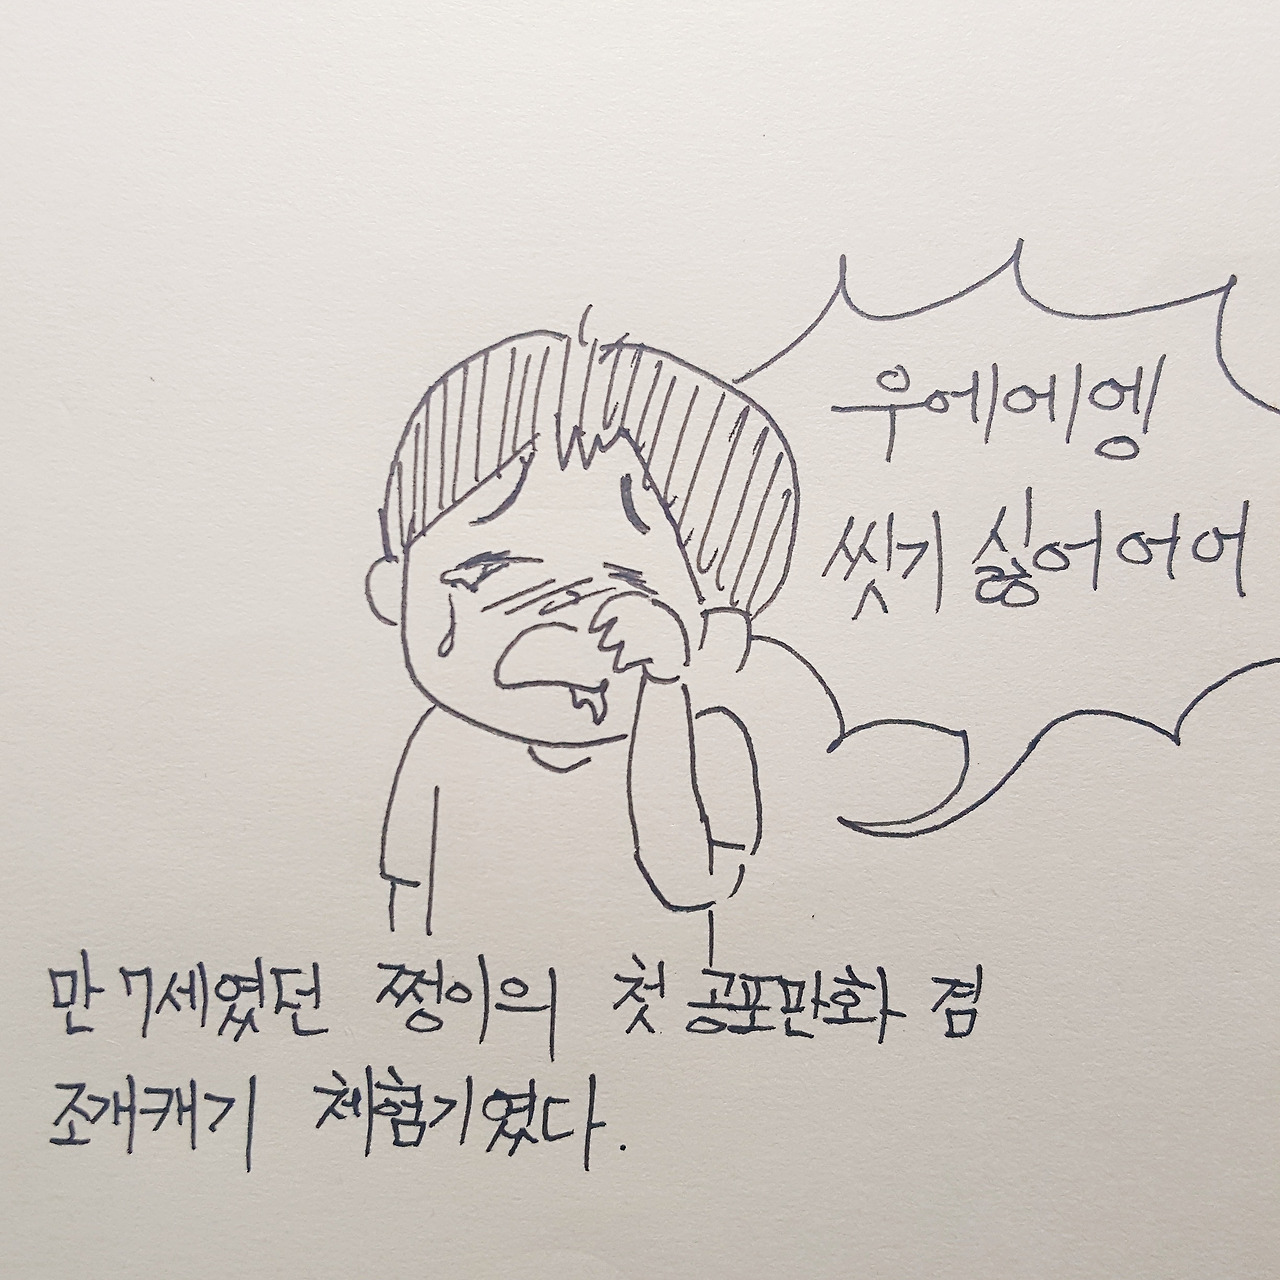 우에에엥
씻기 싫어어어
만 7세였던 쩡이의 첫 공포만화 겸
조개캐기 체험기였다.